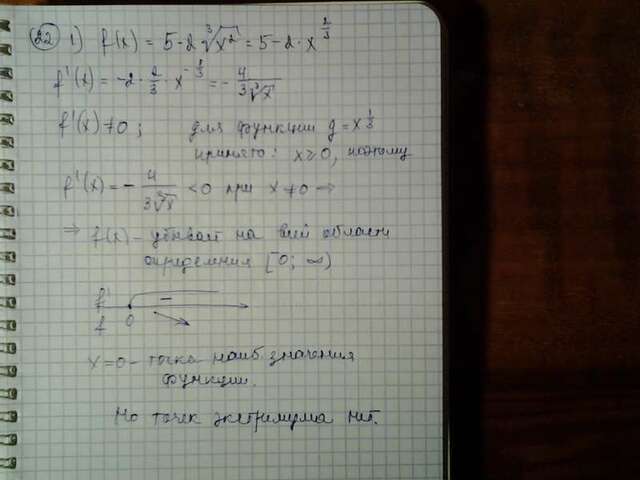 22 1) f(x) = 5 - 2∛x² = 5 - 2·x^(2/3)
f'(x) = -2·2/3·x^(-1/3) = -4/(3∛x)
f'(x) ≠ 0; для функции y = x^(1/3)
принято: x ≥ 0, поэтому
f'(x) = -4/(3∛x) < 0 при x ≠ 0 ⇒
⇒ f(x) - убывает на всей области
определения [0; ∞)
f' −
f 0
x = 0 - точка наиб. значения
функции.
Но точек экстримума нет.